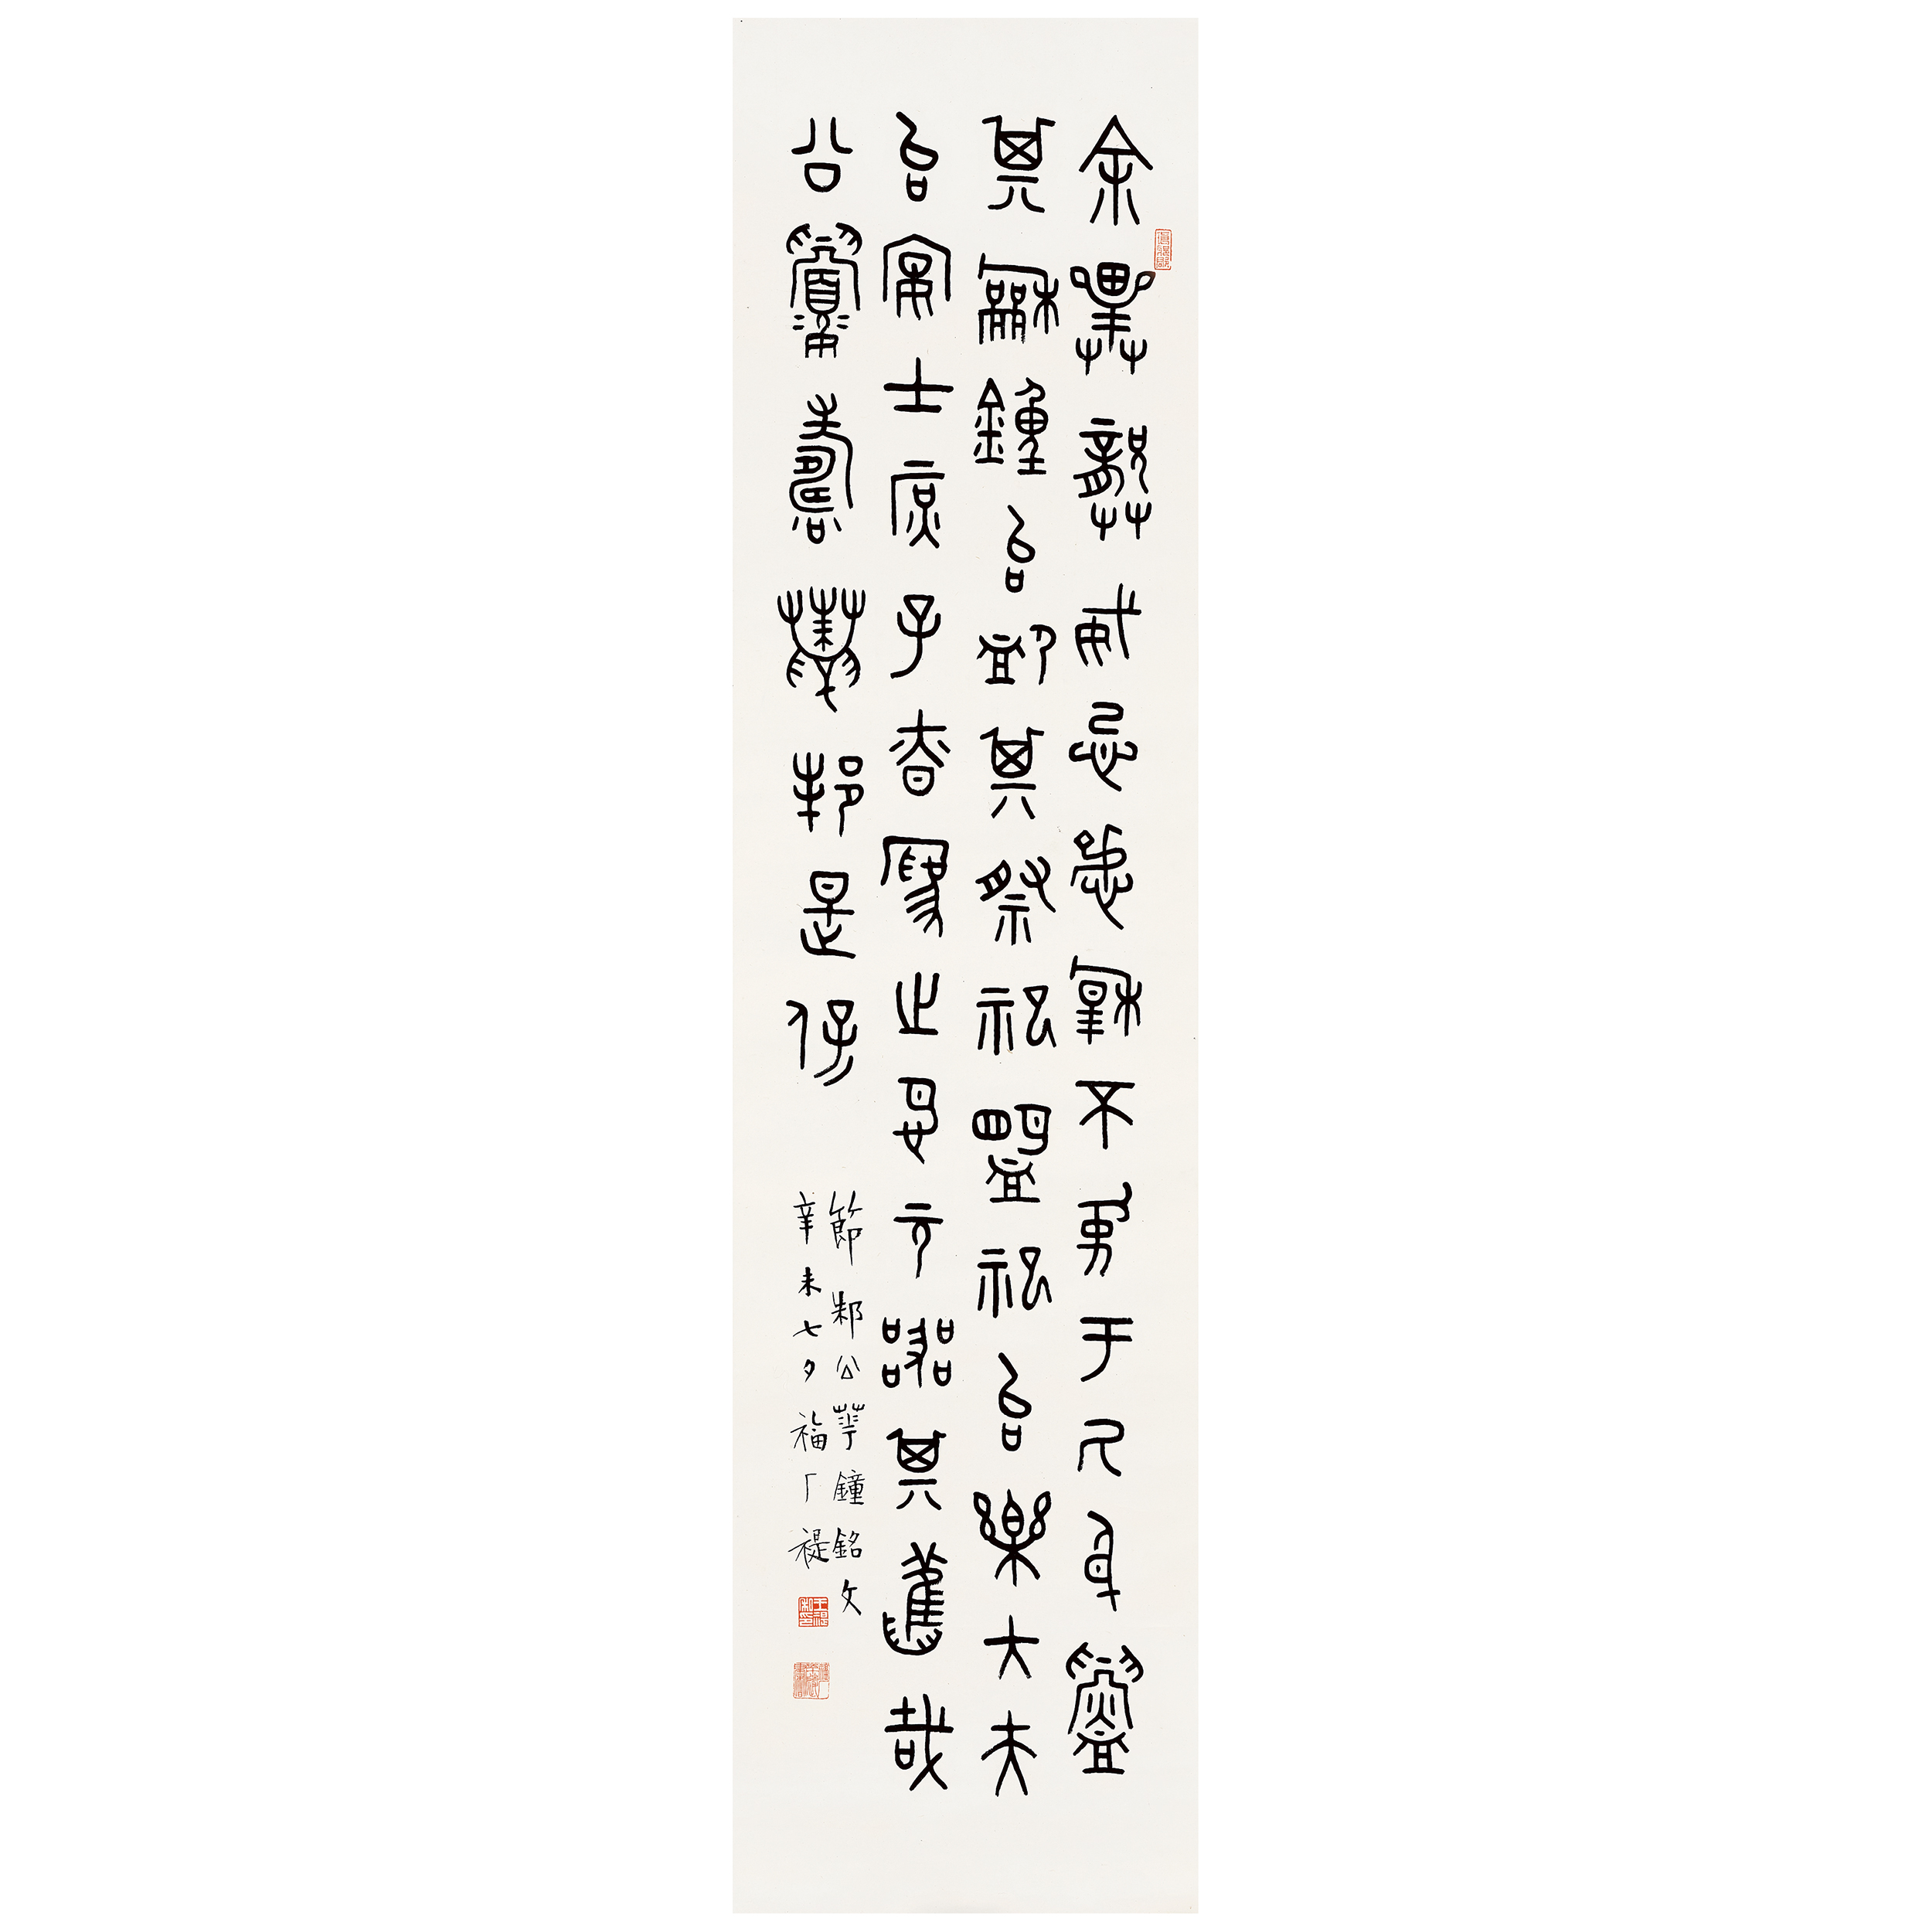 余畢龏威忌淑穆不㒸于氒身鑄
其龢鐘台卹其祭祀盟祀台樂大夫
台宴士庶子昚為之名元器其舊哉
公眉壽邾邦是保
節邾公華鐘銘文
辛未七夕福厂禔
王禔私印